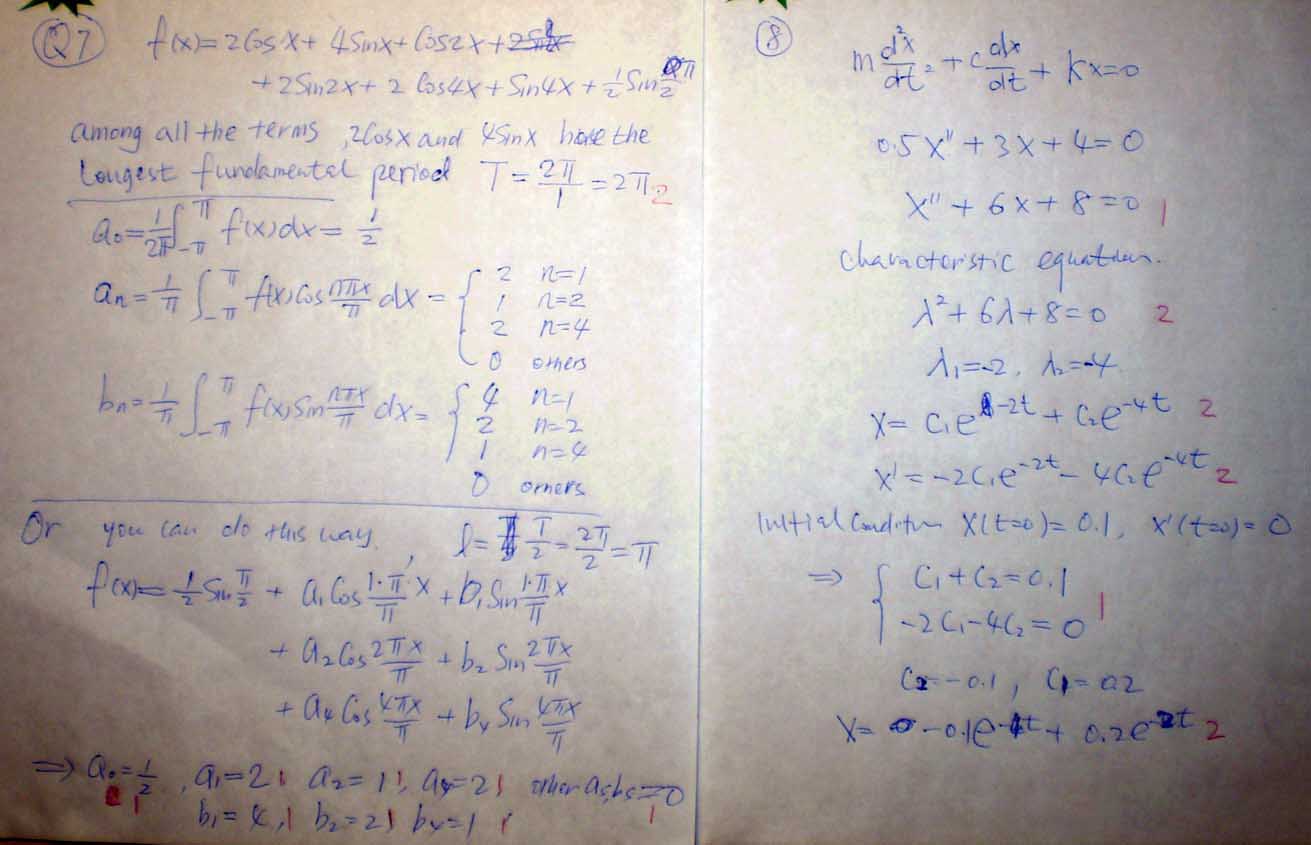 Q7 f(x)=2Cosx+ 4Sinx+ Cos2x+
+ 2Sin2x+ 2 Cos4x+ Sin4x + 1/2 Sin π/2
among all the terms, 2Cosx and 4Sinx have the
Longest fundamental period T = 2π/1 = 2π 2
a₀=1/2π ∫_-π^π f(x)dx= 1/2
aₙ= 1/π ∫_-π^π f(x)Cos nπx/π dx = { 2 n=1
1 n=2
2 n=4
0 others
bₙ= 1/π ∫_-π^π f(x)Sin nπx/π dx= { 4 n=1
2 n=2
1 n=4
0 others
Or you can do this way, l= T/2 = 2π/2 = π
f(x)= 1/2 Sin π/2 + a₁Cos 1·π/π x + b₁Sin 1·π/π x
+ a₂Cos 2πx/π + b₂ Sin 2πx/π
+ a₄ Cos 4πx/π + b₄ Sin 4πx/π
⇒ a₀=1/2, a₁=2 1 a₂=1 1, a₄=2 1 other as, bs =0
1 1
b₁=4, 1 b₂=2 1 b₄=1 1
8 m d²x/dt² + c dx/dt + kx=0
0.5x'' + 3x + 4=0
x'' + 6x + 8=0 1
Characteristic equation.
λ²+ 6λ+8=0 2
λ₁=-2, λ₂=-4
x= C₁e^-2t + C₂e^-4t 2
x'= -2C₁e^-2t - 4C₂e^-4t 2
Initial Condition x(t=0)= 0.1, x'(t=0)= 0
⇒ { C₁+C₂=0.1
-2C₁-4C₂=0 1
C₂=-0.1, C₁=0.2
x= -0.1e^-4t + 0.2e^-2t 2